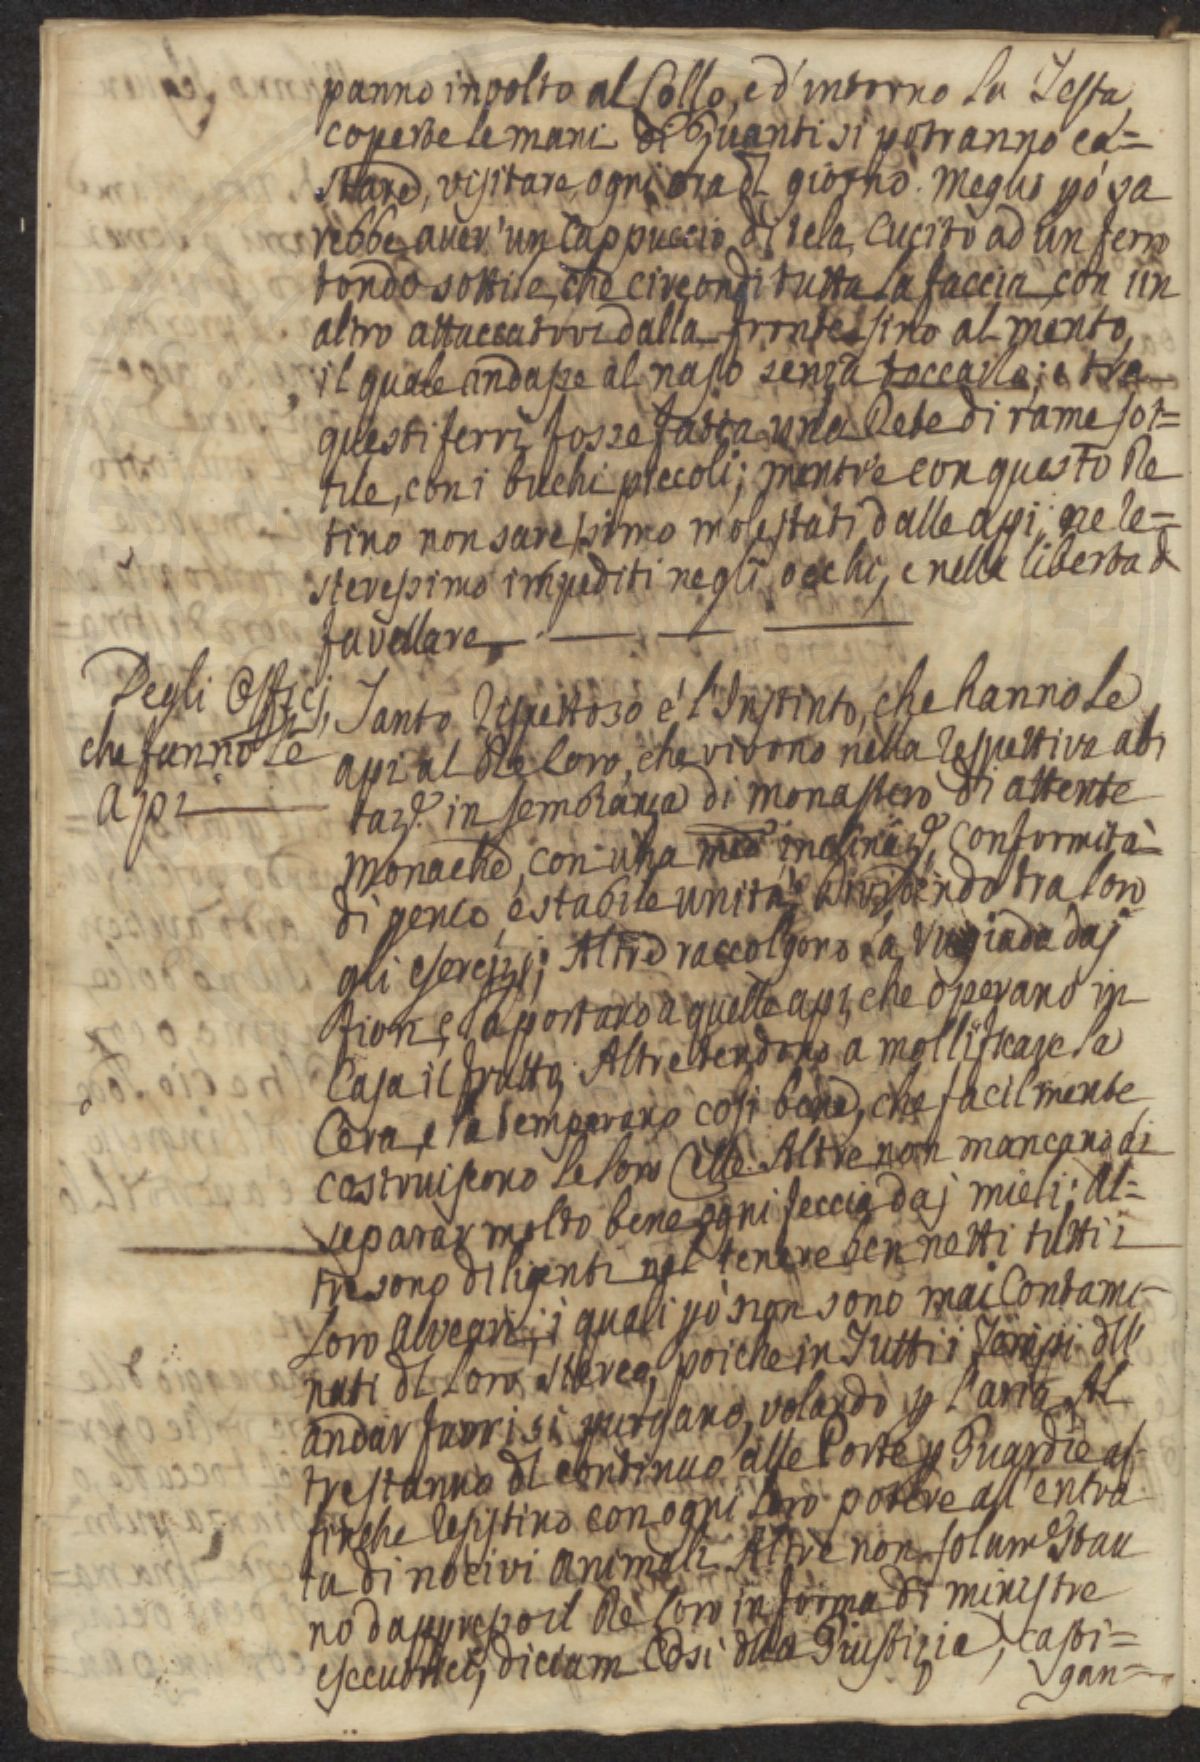 panno involto al Collo, e d'intorno la Testa
coperte le mani di Guanti si potranno ca=
strare, visitare, ogni ora dl giorno. Meglio pò sa
rebbe aver' un Cappuccio di tela, cucito ad un ferro
tondo sottile, che circondi tutta la faccia, con un
altro attaccatovi dalla fronte sino al mento,
il quale andasse al naso senza toccarlo; e tra
questi ferri fosse fatta una Rete di rame sot=
tile, con i buchi piccoli; mentre con questo Re
tino non saressimo molestati dalle api, ne re=
steressimo impediti negli occhi, e nella libertà d
favellare
Degli Offizj,
che fanno le
Api
Tanto rispettoso è l'Instinto, che hanno le
api al Rè loro, che vivono nella respettiva abi
taze. in sembianza di monastero di attente
monache, con una med. inclinaze, conformità
di genio, e stabile unità, dividendo tra loro
gli esercizj; Altre raccolgono la rugiada daj
fiori, e la portano a quelle api, che operano in
Casa il frutto. Altre tendono a mollificare la
Cera, e la temperano così bene, che facilmente
costruiscono le loro Celle. Altre non mancano di
separar molto bene ogni feccia daj mieli: Al=
tre sono diligenti nel tenere ben netti tutti i
loro Alvearj; i quali pò non sono mai Contami-
nati dl loro sterco, poiche in Tutti i Tempi dll'
andar fuori si purgano, volando p l'aria. Al
tre stanno dl continuo alle Porte p Guardie af-
finche resistino con ogni loro potere all'entra
ta di nocivi animali. Altre non solum. stan
no dappresso il Rè loro in forma di ministre
esecutrici, diciam così dlla Giustizia, casti=
gan=